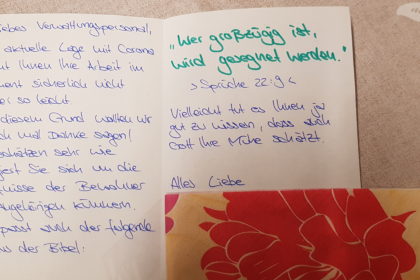 iebes Verwaltungspersonal,
aktuelle Lage mit Corona
ht Ihnen Ihre Arbeit im
ment sicherlich nicht
er so leicht.
diesem Grund wollten wir
ch mal Danke sagen!
schätzen sehr wie
Sie sich um die
nisse der Bewohner
Angehörigen kümmern.
passt auch der folgende
us der Bibel:
„Wer großzügig ist,
wird gesegnet werden."
> Sprüche 22:9 <
Vielleicht tut es Ihnen ja
gut zu wissen, dass auch
Gott Ihre Mühe schätzt.
Alles Liebe